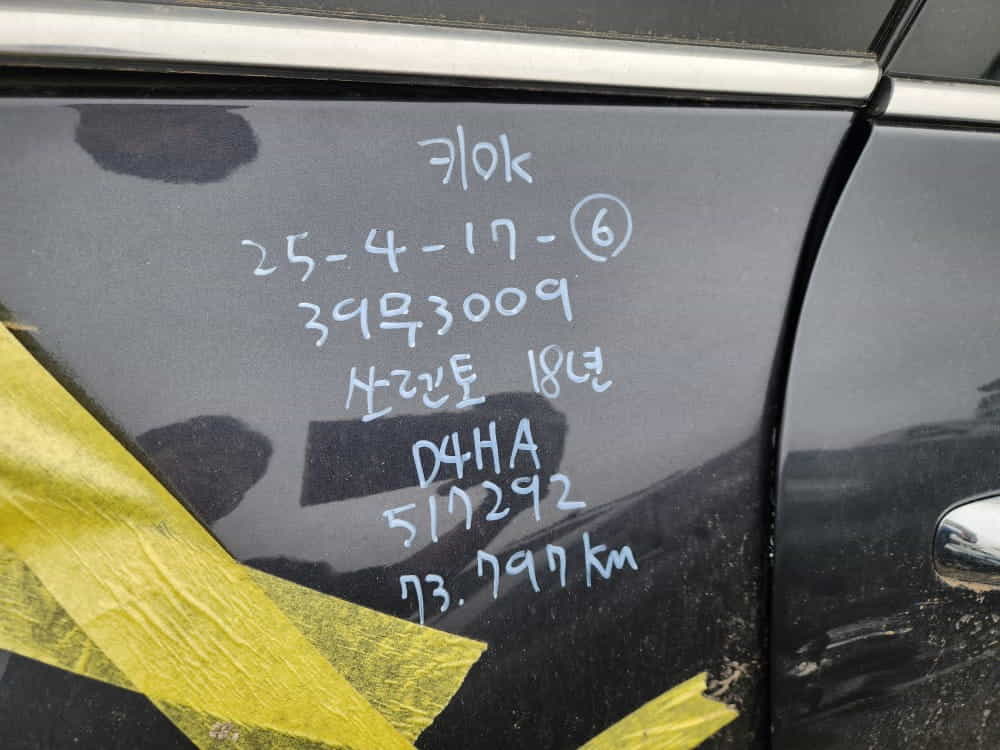 키OK
25-4-17-⑥
39무3009
소렌토 18년
D4HA
517292
73.797km